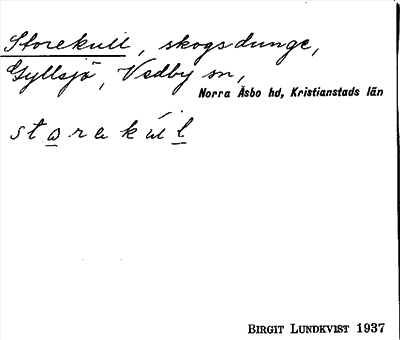 Storekull, skogsdunge,
Gyllsjö, Vedby sn,
Norra Åsbo hd, Kristianstads län
storekúl
BIRGIT LUNDKVIST 1937